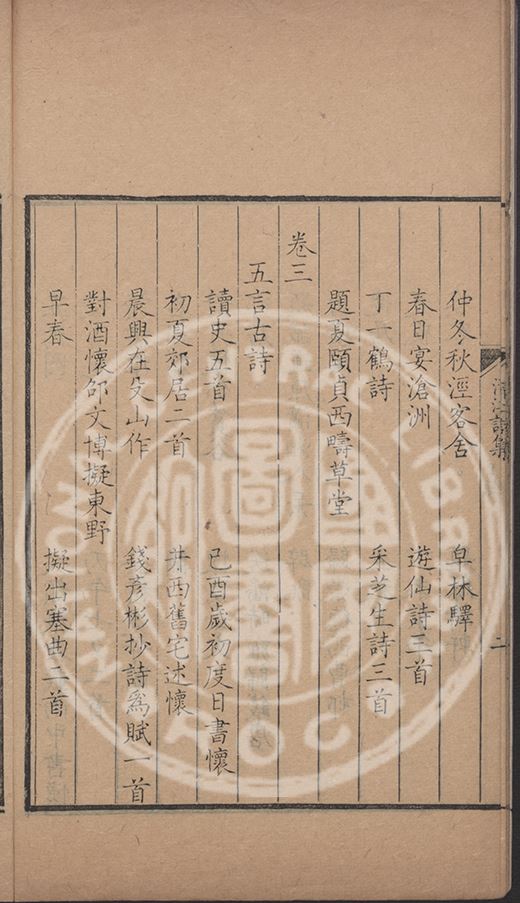 仲冬秋涇客舍　皁林驛
春日宴滄洲　遊仙詩三首
丁一鶴詩　采芝生詩三首
題夏頤貞西疇草堂
卷三
五言古詩
讀史五首　己酉歲初度日書懷
初夏郊居二首　井西舊宅述懷
晨興在殳山作　錢彥彬抄詩爲賦一首
對酒懷邵文博擬東野
早春　擬出塞曲二首
二